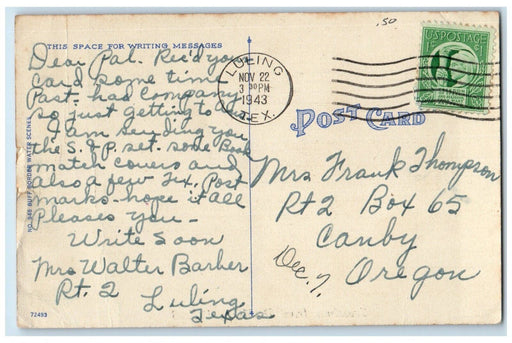 .50
THIS SPACE FOR WRITING MESSAGES
Dear Pal. Rec'd you
card some time
Past - had company
so just getting to
I am sending you
the S. & P. set. some Book
match covers and
also a few Tex. Post
marks - hope it all
Pleases you -
Write Soon
Mrs Walter Barber
Rt. 2 Luling,
Texas
72493
LULING
NOV 22
3 30PM
1943
TEX.
U.S. POSTAGE
POST CARD
Mrs Frank Thompson
Rt 2 Box 65
Canby
Oregon
Dec. 7.